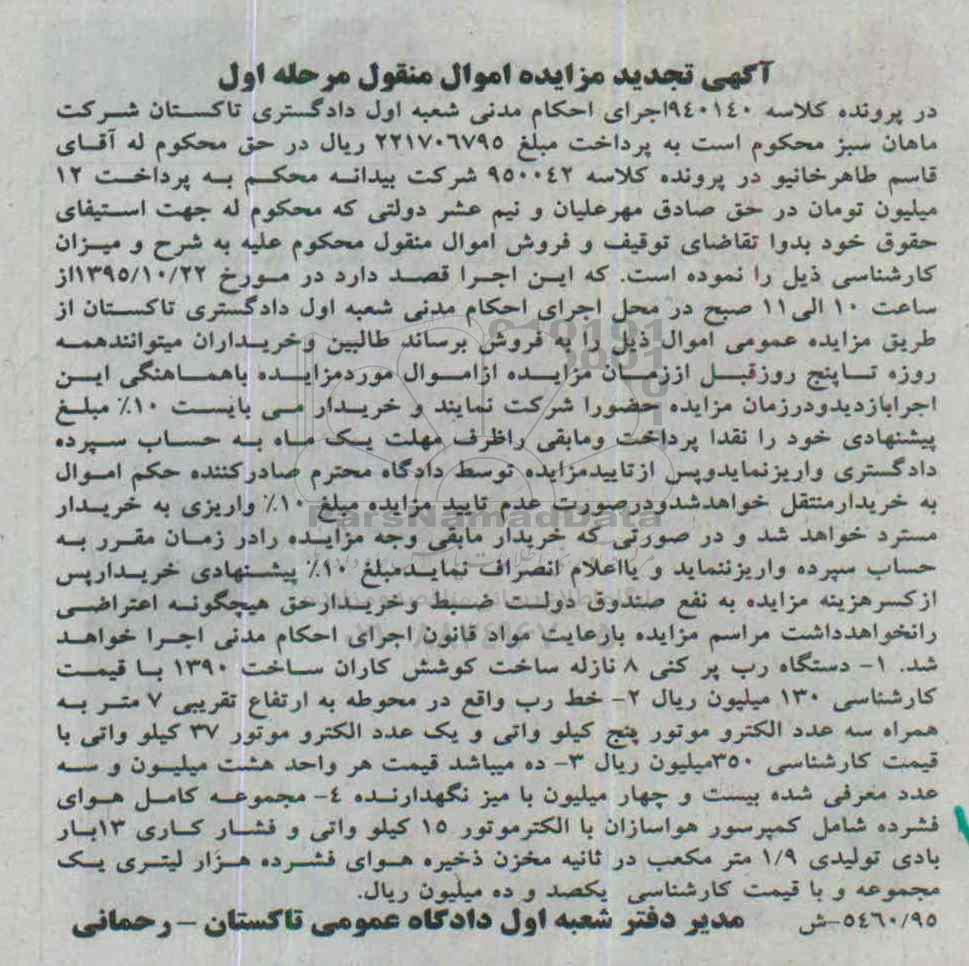 آگهی تجدید مزایده اموال منقول مرحله اول
در پرونده کلاسه ۹٤۰۱٤۰اجرای احکام مدنی شعبه اول دادگستری تاکستان شرکت
ماهان سبز محکوم است به پرداخت مبلغ ۲۲۱۷۰٦۷۹۵ ریال در حق محکوم له آقای
قاسم طاهرخانیو در پرونده کلاسه ۹۵۰۰٤۲ شرکت بیدانه محکم به پرداخت ۱۲
میلیون تومان در حق صادق مهرعلیان و نیم عشر دولتی که محکوم له جهت استیفای
حقوق خود بدوا تقاضای توقیف و فروش اموال منقول محکوم علیه به شرح و میزان
کارشناسی ذیل را نموده است. که این اجرا قصد دارد در مورخ ۱۳۹۵/۱۰/۲۲از
ساعت ۱۰ الی۱۱ صبح در محل اجرای احکام مدنی شعبه اول دادگستری تاکستان از
طریق مزایده عمومی اموال ذیل را به فروش برساند طالبین وخریداران میتوانندهمه
روزه تاپنج روزقبل اززمان مزایده ازاموال موردمزایده باهماهنگی این
اجرابازدیدودرزمان مزایده حضورا شرکت نمایند و خریدار می بایست ۱۰٪ مبلغ
پیشنهادی خود را نقدا پرداخت ومابقی راظرف مهلت یک ماه به حساب سپرده
دادگستری واریزنمایدوپس ازتاییدمزایده توسط دادگاه محترم صادرکننده حکم اموال
به خریدارمنتقل خواهدشدودرصورت عدم تایید مزایده مبلغ ۱۰٪ واریزی به خریدار
مسترد خواهد شد و در صورتی که خریدار مابقی وجه مزایده رادر زمان مقرر به
حساب سپرده واریزننماید و یااعلام انصراف نمایدمبلغ ۱۰٪ پیشنهادی خریدارپس
ازکسرهزینه مزایده به نفع صندوق دولت ضبط وخریدارحق هیچگونه اعتراضی
رانخواهدداشت مراسم مزایده بارعایت مواد قانون اجرای احکام مدنی اجرا خواهد
شد. ۱- دستگاه رب پر کنی ۸ نازله ساخت کوشش کاران ساخت ۱۳۹۰ با قیمت
کارشناسی ۱۳۰ میلیون ریال ۲- خط رب واقع در محوطه به ارتفاع تقریبی ۷ متر به
همراه سه عدد الکترو موتور پنج کیلو واتی و یک عدد الکترو موتور ۳۷ کیلو واتی با
قیمت کارشناسی ۳۵۰میلیون ریال ۳- ده میباشد قیمت هر واحد هشت میلیون و سه
عدد معرفی شده بیست و چهار میلیون با میز نگهدارنده ٤- مجموعه کامل هوای
فشرده شامل کمپرسور هواسازان با الکترموتور ۱۵ کیلو واتی و فشار کاری ۱۳بار
بادی تولیدی ۱/۹ متر مکعب در ثانیه مخزن ذخیره هوای فشرده هزار لیتری یک
مجموعه و با قیمت کارشناسی یکصد و ده میلیون ریال.
۵٤٦۰/۹۵-ش مدیر دفتر شعبه اول دادگاه عمومی تاکستان - رحمانی
ParsNamadData